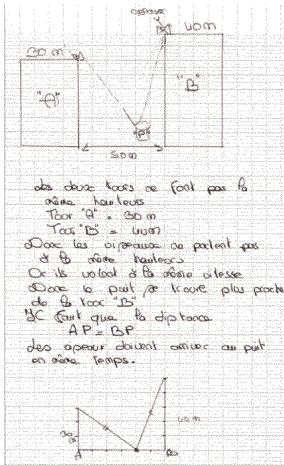 oiseaux
30 m
40 m
"A"
"B"
"P"
50 m
Les deux tours ne font pas la
même hauteurs
Tour "A" = 30 m
Tour "B" = 40 m
Donc les oiseaux ne partent pas
à la même hauteurs
Or ils volent à la même vitesse
Donc le puit se trouve plus proche
de la tour "B"
Il faut que la distance
AP = BP
Les oiseaux doivent arriver au puit
en même temps.
30 m
40 m
A
B